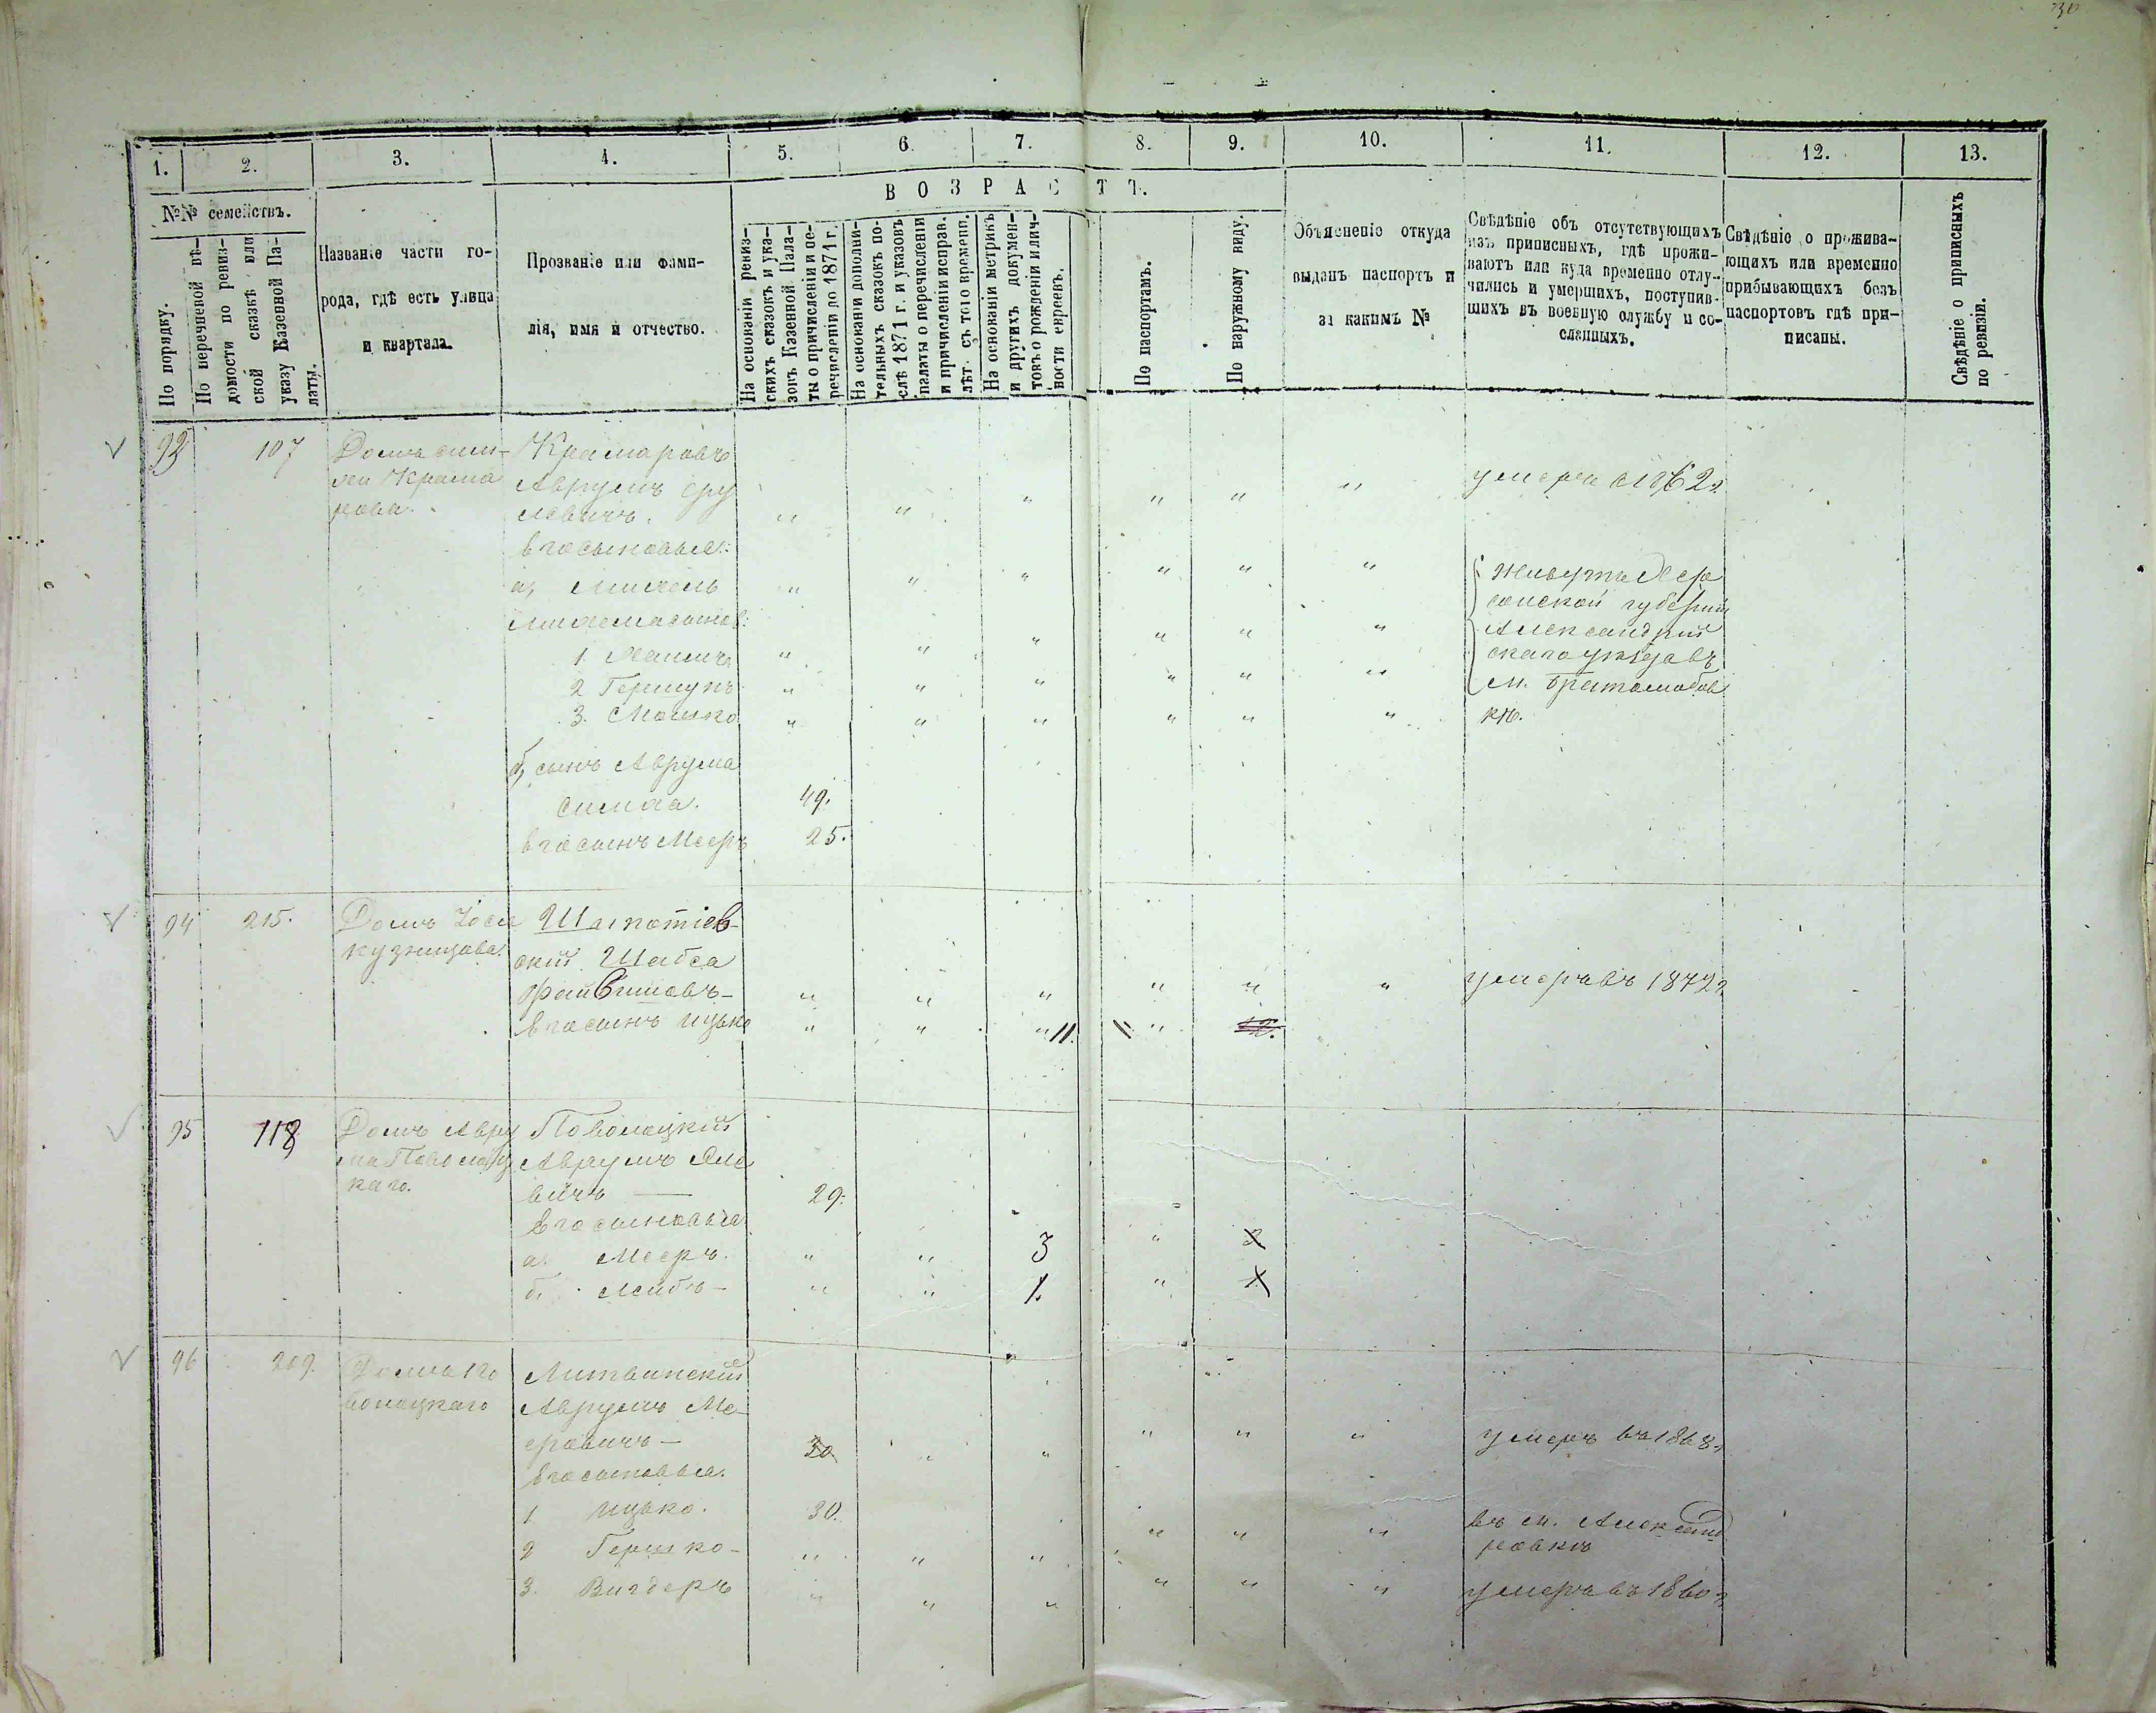 30
1. 2. 3. 4. 5. 6. 7. 8. 9. 10. 11. 12. 13.
№№ семействъ.
По порядку.
По перечневой вѣ-
домости по ревиз-
ской сказкѣ или
указу Казенной Па-
латы.
Названіе части го-
рода, гдѣ есть улица
и квартала.
Прозваніе или фами-
лія, имя и отчество.
ВОЗРАСТЪ.
На основаніи ревиз-
скихъ сказокъ и ука-
зовъ Казенной Пала-
ты о причисленіи и пе-
речисленіи до 1871 г.
На основаніи дополни-
тельныхъ сказокъ по-
слѣ 1871 г. и указовъ
палаты о перечисленіи
и причисленіи исправ.
лѣт. съ того времени.
На основаніи метрикъ
и другихъ докумен-
товъ о рожденіи и лич-
ности евреевъ.
По паспортамъ.
По наружному виду.
Объясненіе откуда
выданъ паспортъ и
за какимъ №
Свѣдѣніе объ отсутствующихъ
изъ приписныхъ, гдѣ прожи-
ваютъ или куда временно отлу-
чились и умершихъ, поступив-
шихъ въ военную службу и со-
сланныхъ.
Свѣдѣніе о прожива-
ющихъ или временно
прибывающихъ безъ
паспортовъ гдѣ при-
писаны.
Свѣдѣніе о приписныхъ
по ревизіи.
93 107 Крамаровъ
Аврумъ Сру
левичъ. " " " " " " умеръ в 1862 г.
Его сыновья:
а, " " " " " "
1. " " " " " "
2 Гершунъ " " " " " "
3. Мошко " " " " " "
Живутъ Хер
сонской губерніи
Александрій
скаго уѣзда въ
м. Братолюбов
кѣ.
б, сынъ Аврума
Симха. 49.
Его сынъ Мееръ 25.
94 215. Домъ Іося
Кузнецова.
скій Шабса
" " " " " " умеръ въ 1872 г.
Его сынъ Ицько " " " 11. "
95 118 Домъ Авру
ма Поволоц
каго.
Поволоцкій
Аврумъ
вичъ — 29.
Его сыновья
а. Мееръ. " " 3 "
б. Лейбъ — " " 1. "
96 209. Дома По
волоцкаго
Литвинскій
Аврумъ Ме-
еровичъ — 30 " " " " " умеръ въ 1868 г.
Его сыновья.
1 Ицько. 30.
2 Гершко — " " " " " " въ м. Александ
ровкѣ
3. Вигдеръ " " " " " " умеръ въ 1860 г.